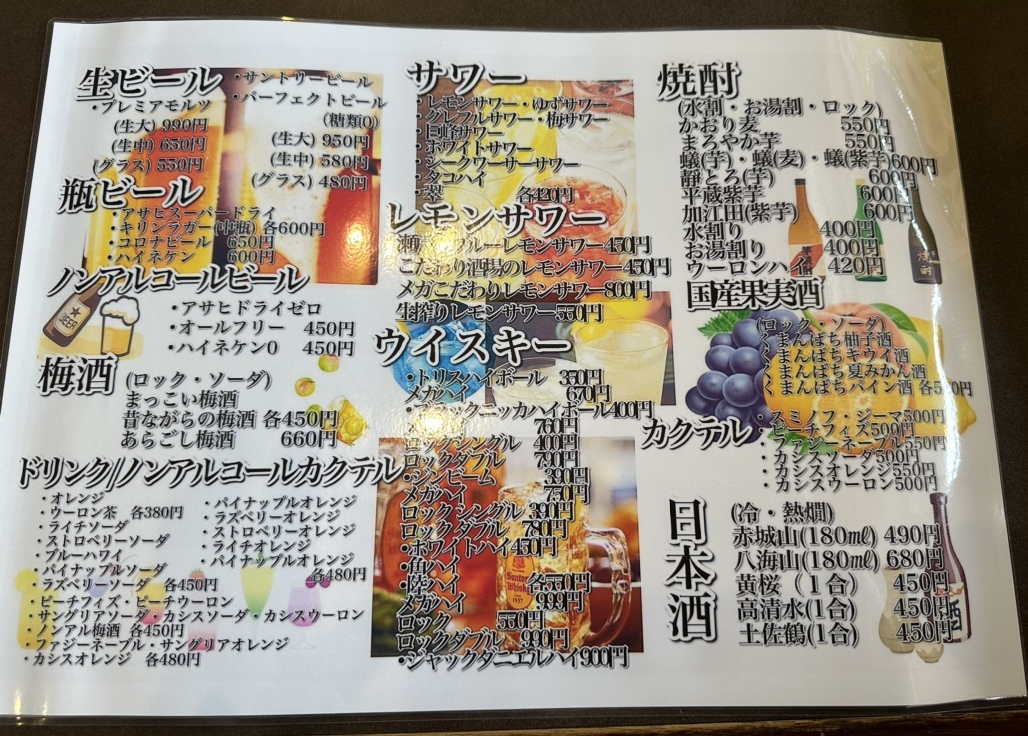 生ビール
・プレミアモルツ
(生大) 990円
(生中) 650円
(グラス) 550円
・サントリービール
・パーフェクトビール
(糖類0)
(生大) 950円
(生中) 580円
(グラス) 480円
瓶ビール
・アサヒスーパードライ
・キリンラガー(中瓶) 各600円
・コロナビール 650円
・ハイネケン 600円
ノンアルコールビール
・アサヒドライゼロ
・オールフリー 450円
・ハイネケン0 450円
梅酒 (ロック・ソーダ)
まっこい梅酒
昔ながらの梅酒 各450円
あらごし梅酒 660円
ドリンク/ノンアルコールカクテル
・オレンジ
・ウーロン茶 各380円
・ライチソーダ
・ストロベリーソーダ
・ブルーハワイ
・パイナップルソーダ
・ラズベリーソーダ 各450円
・ピーチフィズ・ピーチウーロン
・サングリアソーダ・カシスソーダ・カシスウーロン
・ノンアル梅酒 各450円
・ファジーネーブル・サングリアオレンジ
・カシスオレンジ 各480円
・パイナップルオレンジ
・ラズベリーオレンジ
・ストロベリーオレンジ
・ライチオレンジ
・パイナップルオレンジ
各480円
サワー
・レモンサワー・ゆずサワー
・グレフルサワー・梅サワー
・巨峰サワー
・ホワイトサワー
・シークワーサーサワー
・タコハイ
・翠 各420円
レモンサワー
ブルーレモンサワー450円
こだわり酒場のレモンサワー450円
メガこだわりレモンサワー800円
生搾りレモンサワー550円
ウイスキー
・トリスハイボール 350円
メガハイ 670円
ニッカハイボール400円
760円
ロックシングル 400円
ロックダブル 790円
・ジンビーム 390円
メガハイ 750円
ロックシングル 390円
ロックダブル 780円
・ホワイトハイ450円
・角ハイ
・陸ハイ 各550円
メガハイ 999円
ロック 550円
ロックダブル 990円
・ジャックダニエルハイ900円
焼酎
(水割・お湯割・ロック)
かおり麦 550円
まろやか芋 550円
蟻(芋)・蟻(麦)・蟻(紫芋)600円
静とろ(芋) 600円
平蔵紫芋 600円
加江田(紫芋) 600円
水割り 400円
お湯割り 400円
ウーロンハイ 420円
国産果実酒
(ロック・ソーダ)
くまんばち柚子酒
くまんばちキウイ酒
くまんばち夏みかん酒
くまんばちパイン酒 各5 0円
カクテル
・スミノフ・ジーマ500円
・ピーチフィズ500円
・ファジーネーブル550円
・カシスソーダ500円
・カシスオレンジ550円
・カシスウーロン500円
日本酒
(冷・熱燗)
赤城山(180㎖) 490円
八海山(180㎖) 680円
黄桜 (1合) 450円
高清水(1合) 450円
土佐鶴(1合) 450円